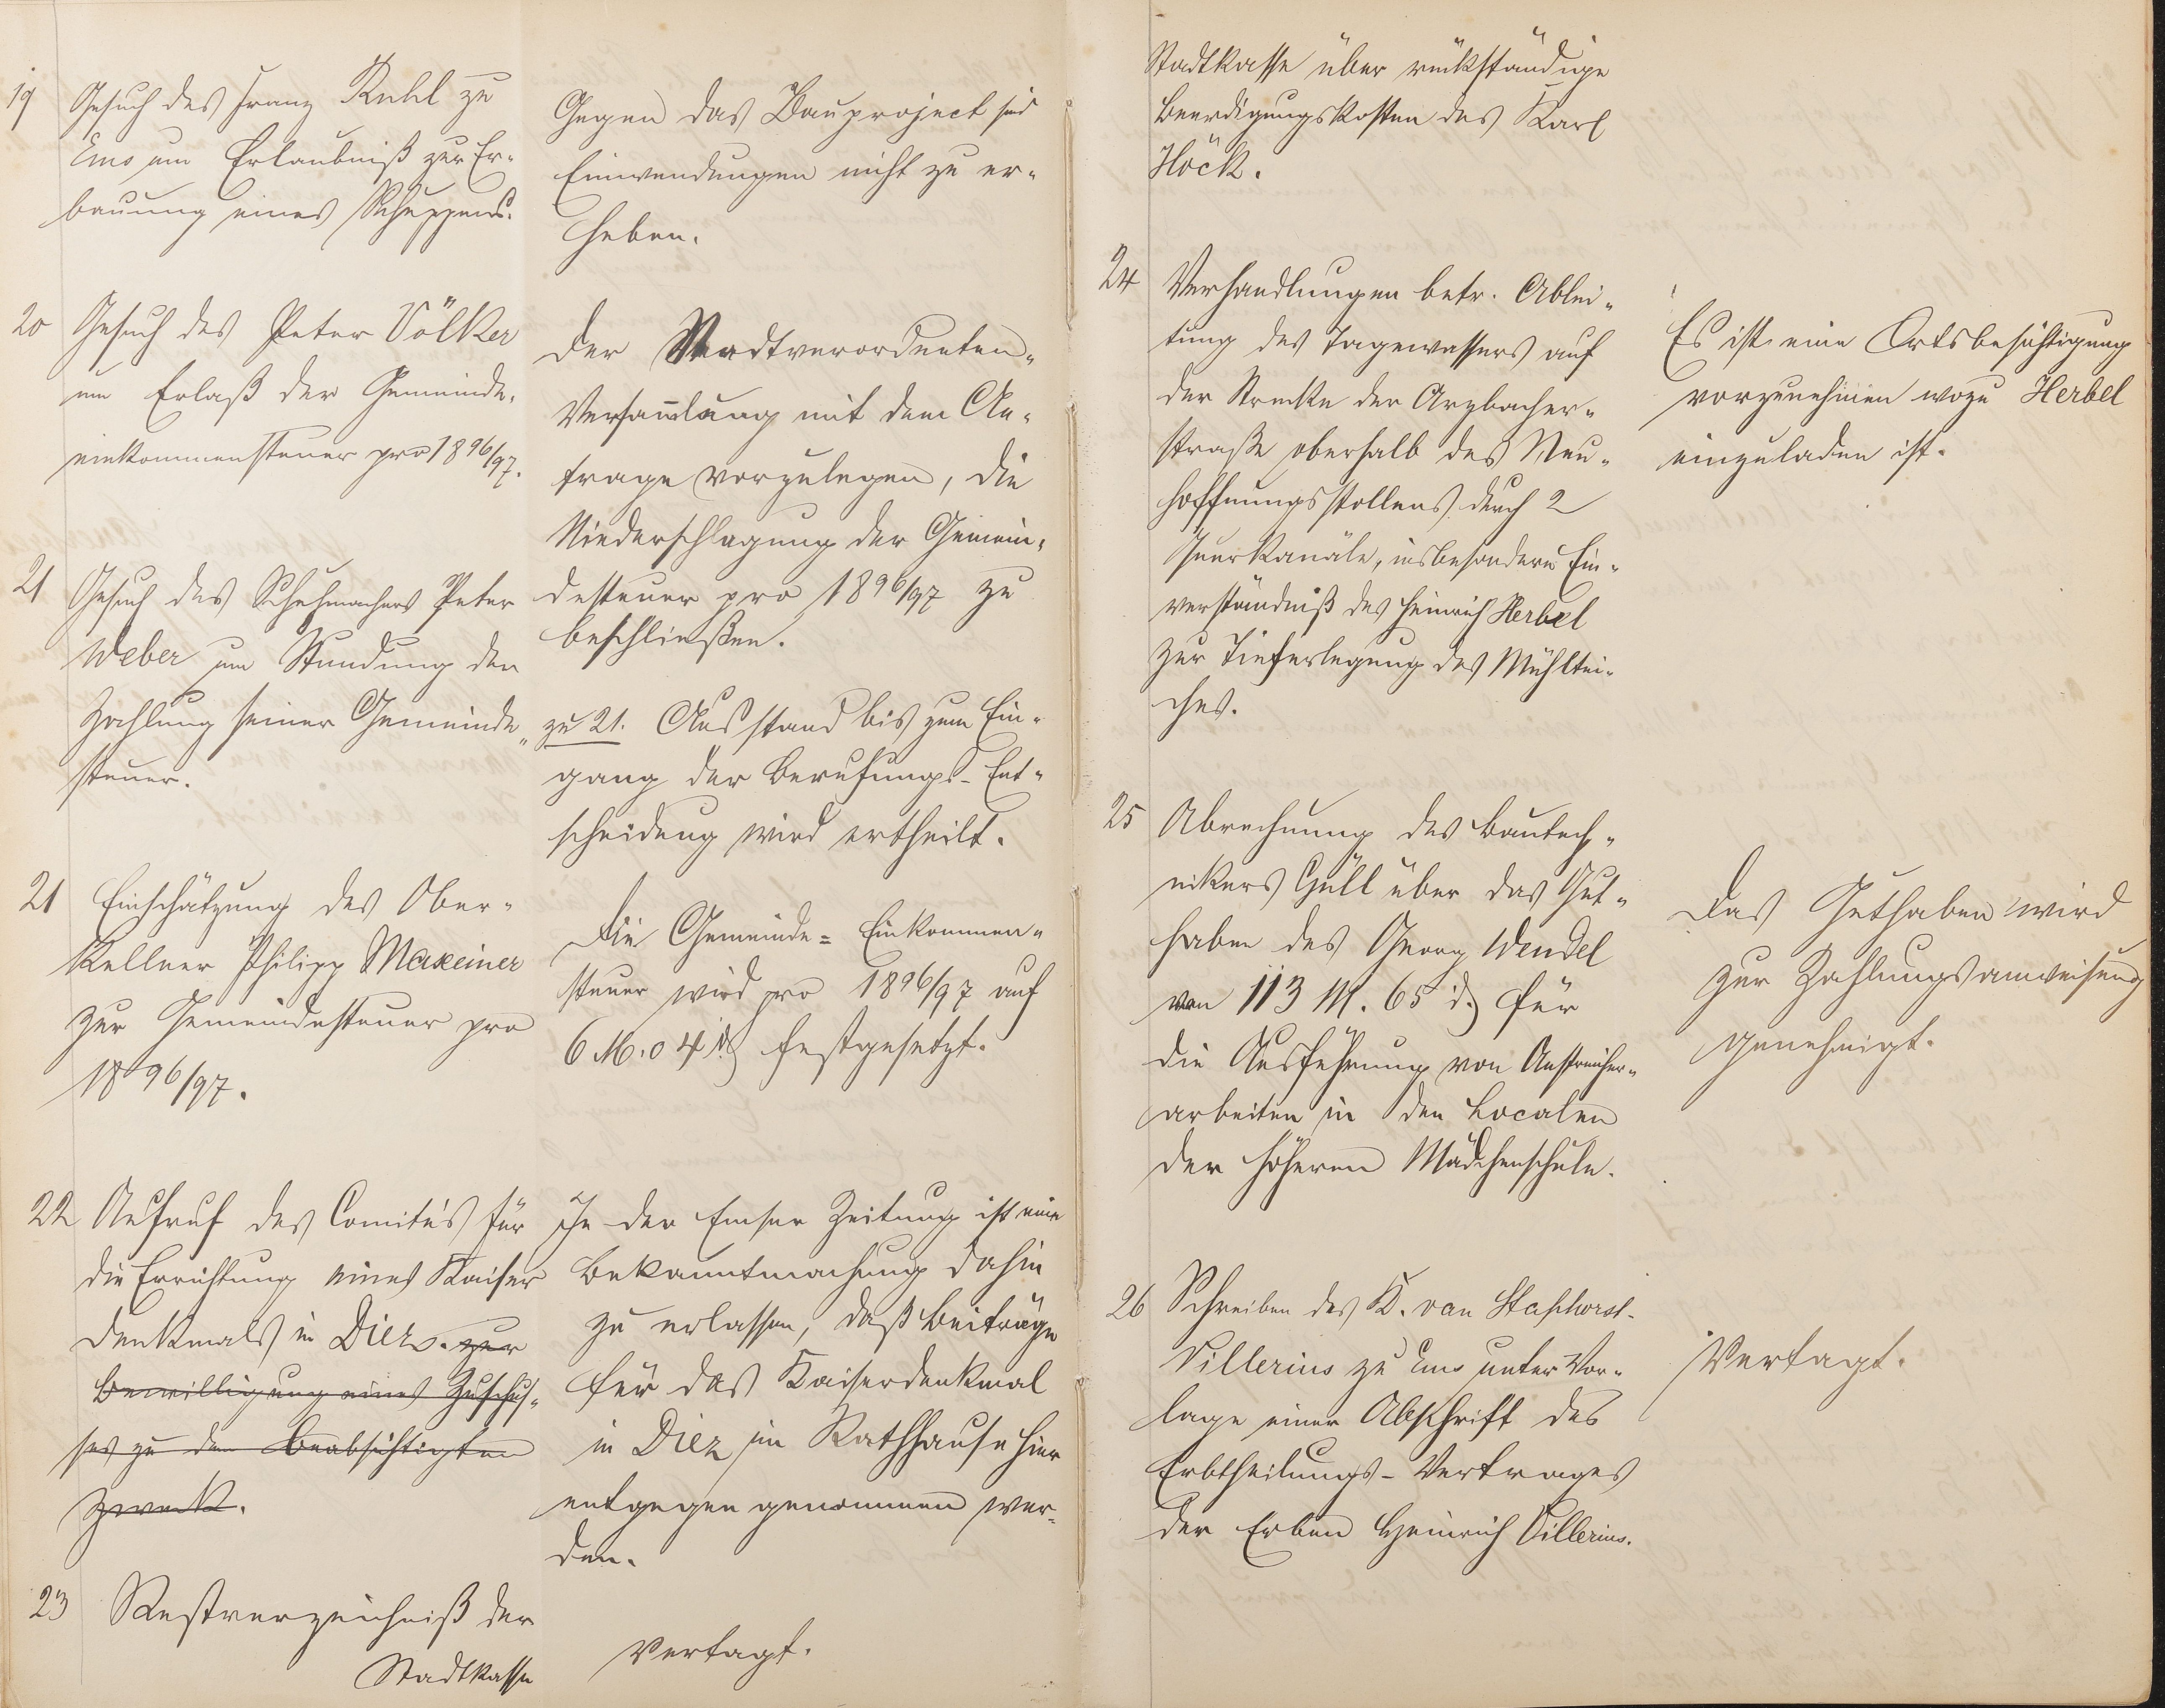 19
Gesuch des Franz Ruhl zu
Ems um Erlaubniß zur Er-
bauung eines Schuppens.
Gegen das Bauproject sind
Einwendungen nicht zu er-
heben.
20
Gesuch des Peter Völker
um Erlaß der Gemeinde-
einkommensteuer pro 1896/97.
Der Stadtverordneten-
Versam̄lung mit dem An-
trage vorzulegen, die
Niederschlagung der Gemein-
desteuer pro 1896/97 zu
beschließen.
21
Gesuch des Schuhmachers Peter
Weber um Stundung der
Zahlung seiner Gemeinde-
steuer.
zu 21. Ausstand bis zum Ein-
gang der Berufungs-Ent-
scheidung wird ertheilt.
21
Einschätzung des Ober-
Kellner Philipp Maxeiner
zur Gemeindesteuer pro
1896/97.
Die Gemeinde-Einkommen-
steuer wird pro 1896/97 auf
6 M. 04 ₰ festgesetzt.
22
Aufruf des Comités für
die Errichtung eines Kaiser
Denkmals in Diez. zur
Bewilligung eines Zuschus-
ses zu dem beabsichtigten
Zweck.
In der Emser Zeitung ist eine
Bekanntmachung dahin
zu erlassen, daß Beiträge
für das Kaiserdenkmal
in Diez im Rathhause hier
entgegen genommen wer-
den.
23
Restverzeichniß der
Stadtkasse
Vertagt.
Stadtkasse über rückständige
Beerdigungskosten des Karl
Höck.
24
Verhandlungen betr. Ablei-
tung des Tagewassers auf
der Strecke der Arzbacher-
straße oberhalb des Neu-
hoffnungsstollens durch 2
Querkanäle, insbesondere Ein-
verständniß des Heinrich Herbel
zur Tieferlegung des Mühltei-
ches.
Es ist eine Ortsbesichtigung
vorzunehmen wozu Herbel
einzuladen ist.
25
Abrechnung des Bautech-
nikers Güll über das Gut-
haben des Georg Wendel
von 113 M. 65 ₰ für
die Ausführung von Anstreicher-
arbeiten in den Localen
der höheren Mädchenschule.
Das Guthaben wird
zur Zahlungsanweisung
genehmigt.
26
Schreiben des K. van Staphorst-
Villerius zu Ems unter Vor-
lage einer Abschrift des
Erbtheilungs-Vertrages
der Erben Heinrich Villerius.
Vertagt.